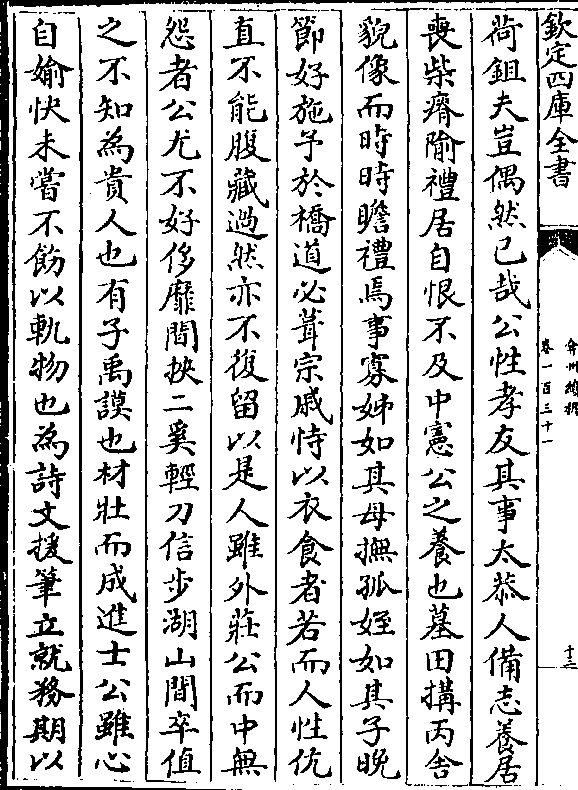 欽定四庫全書
弇州續稿
卷一百三十一
十三
荷鉏夫豈偶然已哉公性孝友其事太恭人備志養居
喪柴瘠隃禮居自恨不及中憲公之養也墓田搆丙舍
貌像而時時瞻禮焉事寡姊如其母撫孤姪如其子晚
節好施予於橋道必葺宗戚恃以衣食者若而人性伉
直不能腹藏過然亦不復留以是人雖外莊公而中無
怨者公尤不好侈靡間挾二奚輕刀信步湖山間卒值
之不知為貴人也有子禹謨也材壯而成進士公雖心
自愉快未嘗不飭以軌物也為詩文援筆立就務期以